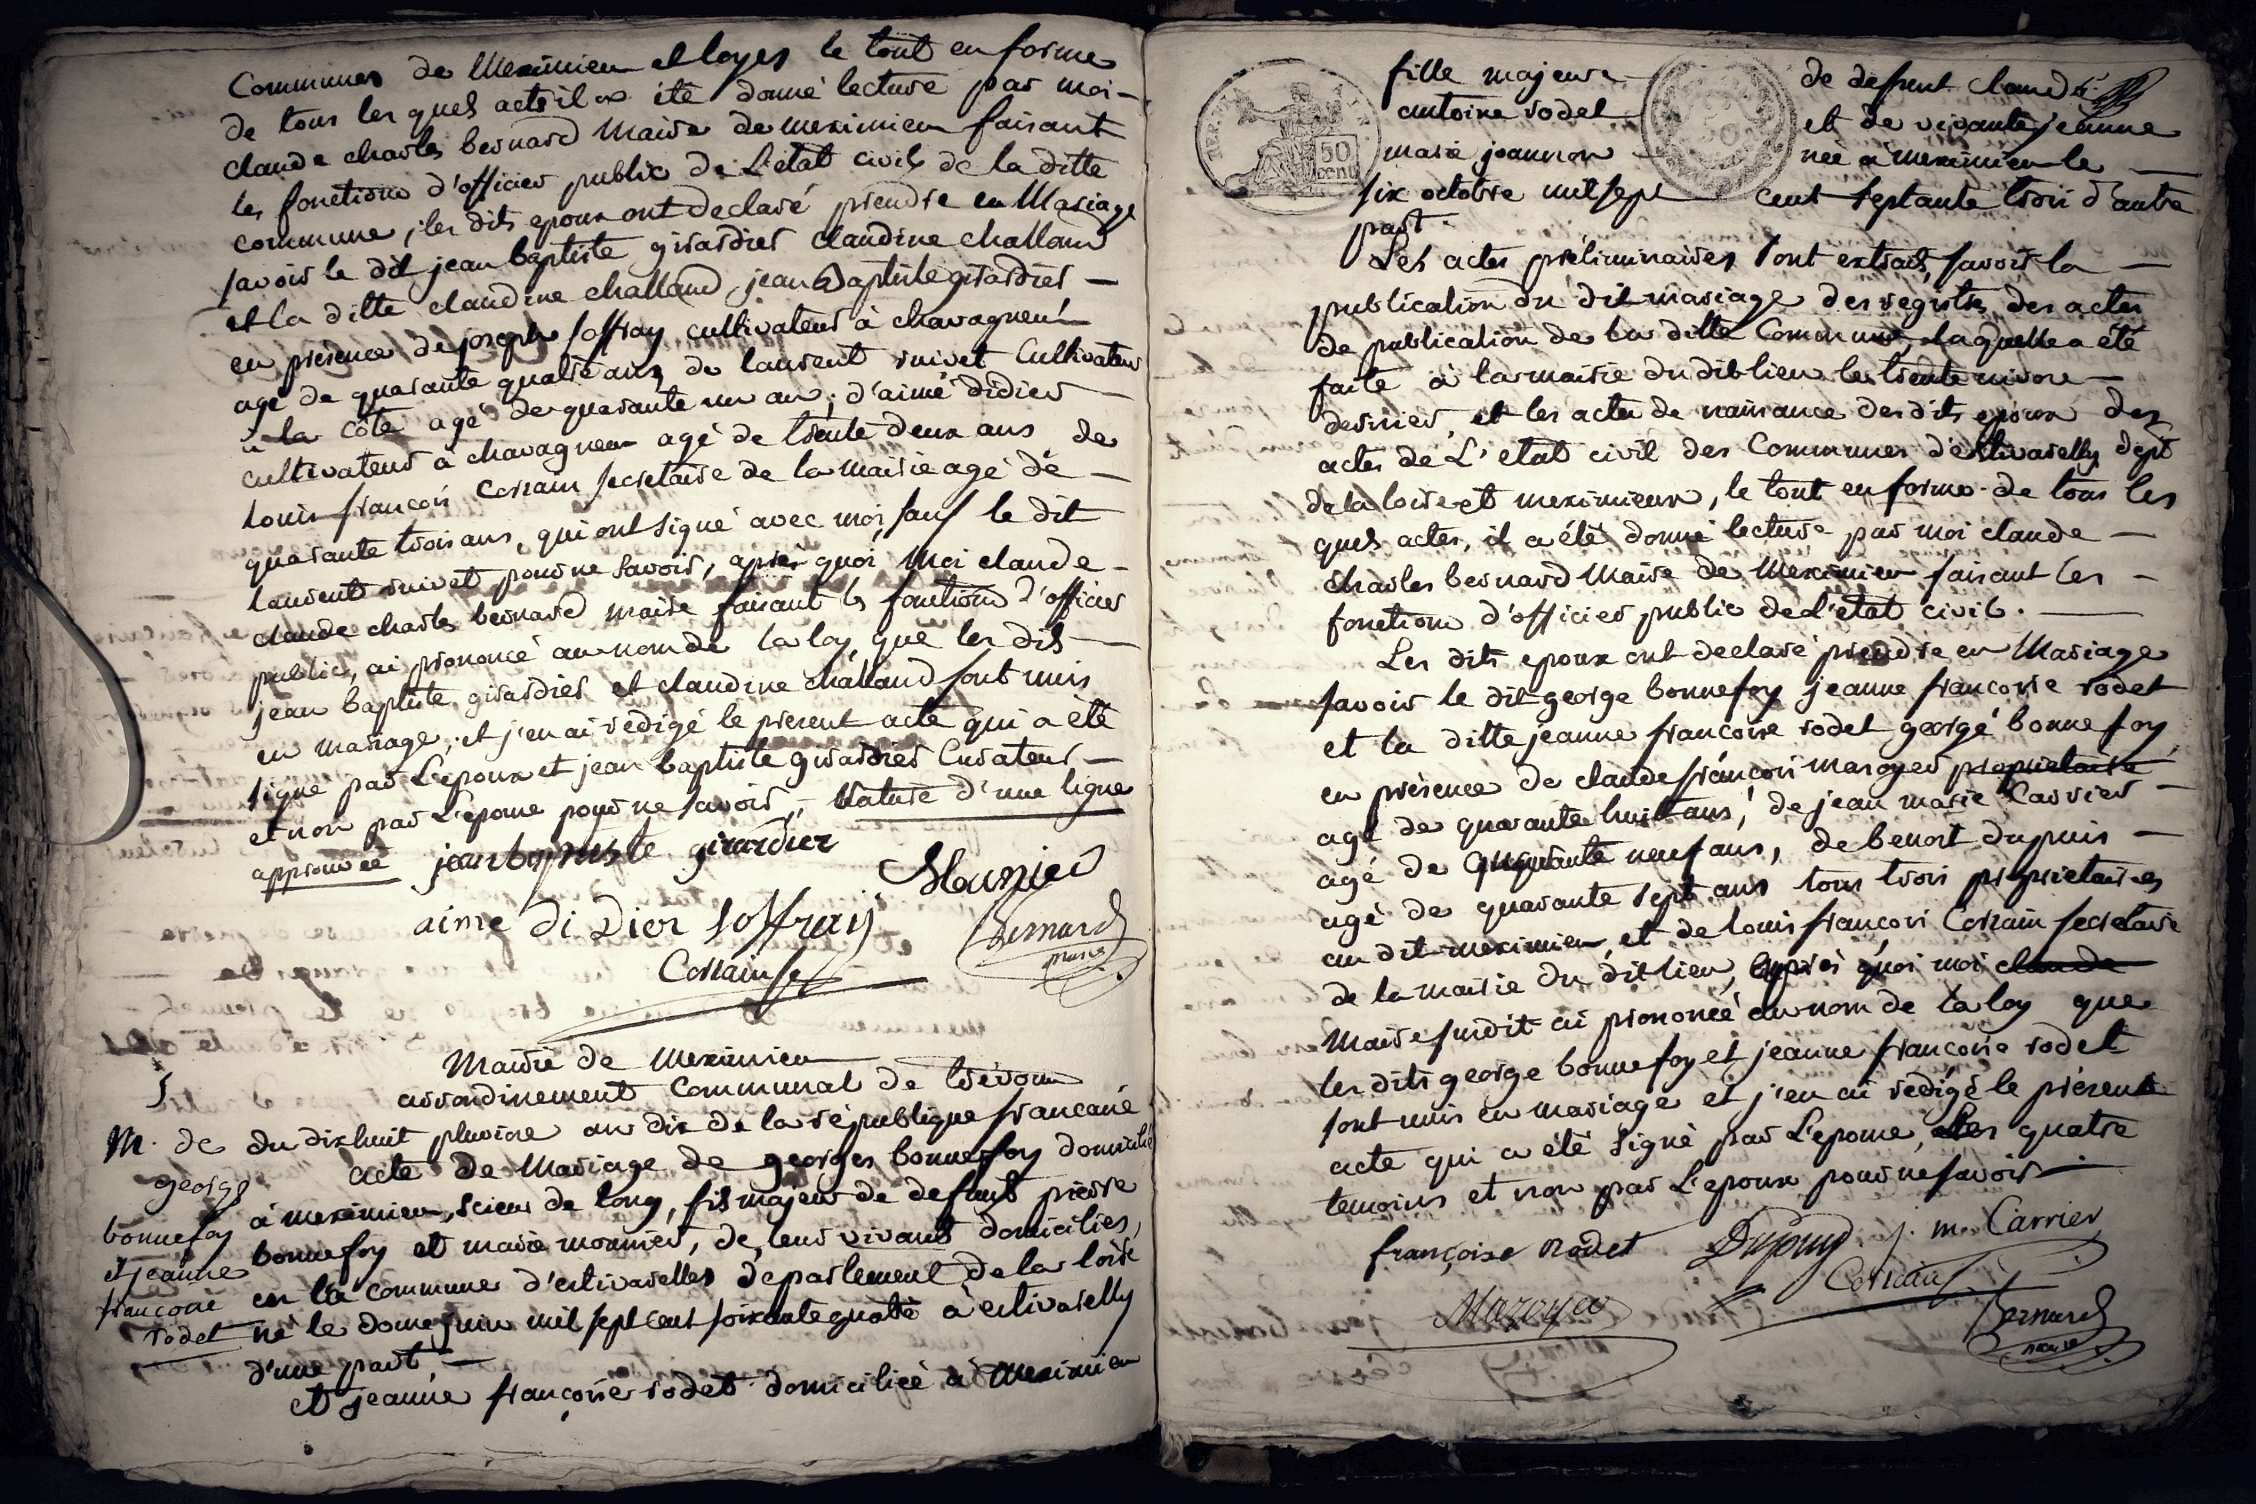 Communes de Meximieu et loyes le tout en forme
de tous les quels actes il a été donné lecture par moi
claude charles bernard Maire de meximieu faisant
les fonctions d'officier public de L'etat civil de la ditte
commune, les dits epoux ont declaré prendre en Mariage
savoir le dit jean baptiste girardier claudine challand
et la ditte claudine challand jean Baptiste girardier —
en présence de joseph soffray cultivateur à chavagneu
agé de quarante quatre ans, de laurent ruivet Cultivateur
à la côte agé de quarante un an, d'aimé didier —
cultivateur à chavagneux agé de trente deux ans de
Louis françois Corsain secretaire de la mairie agé de —
quarante trois ans, qui ont signé avec moi, sauf le dit
laurent ruivet pour ne savoir, après quoi, Moi claude —
claude charles bernard maire faisant les fonctions d'officier
public, ai prononcé au nom de la loy, que les dits —
jean baptiste girardier et claudine challand sont unis
en mariage, et j'en ai rédigé le present acte qui a été
signé par L'epoux et jean baptiste girardier Curateur —
et non par L'epouse pour ne savoir, — Rature d'une ligne
approuvée jean baptiste girardier
Mounier
aime di Dier soffray
Bernard
maire
Corsain se
Mairie de Meximieu
arrondinement Communal de trévoux
5
M. de
george
bonnefoy
et jeanne
françoise
rodet
du dix huit pluviose an dix de la république francaise
acte de Mariage de georges bonnefoy domicilié
à meximieu, scieur de long, fils majeur de defunt pierre
bonnefoy et marie mounier, de leur vivant domicilies,
en la commune d'estivarelles departement de la loire
né le douze juin mil sept cent soixante quatre à estivarelly
d'une part —
et jeanne françoise rodet domiciliée à Meximieu
fille majeure de defunt claude
antoine rodet et de vivante jeanne
marie joannon née à meximieu le —
six octobre mil sept cent septante trois d'autre
part.
50
cent
Les actes préliminaires sont extraits, savoir la —
publication du dit mariage des registres des actes
de publication de la ditte Commune, laquelle a été
faite à la mairie du dit lieu le trente nivose —
dernier, et les actes de naissance des dits epoux des
actes de L'etat civil des Communes d'estivarelly dept
de la loire et meximieux, le tout en forme. de tous les
quels actes, il a été donné lecture par moi claude —
charles bernard Maire de Meximieu faisant les —
fonctions d'officier public de L'etat civil. —
Les dits epoux ont declaré prendre en Mariage
savoir le dit george bonnefoy jeanne françoise rodet
et la ditte jeanne françoise rodet george bonnefoy
en présence de claude françois mazoyer propriétaire
agé de quarante huit ans, de jean marie Carrier —
agé de cinquante neuf ans, de benoit dupuis —
agé de quarante sept ans tous trois propriétaires
au dit meximieu, et de louis françois Corsain secretaire
de la mairie du dit lieu, après quoi moi claude
Maire susdit ai prononcé au nom de la loy que
les dits george bonnefoy et jeanne françoise rodet
sont unis en mariage et j'en ai rédigé le présent
acte qui a été signé par L'epouse, les quatre
temoins et non par L'epoux pour ne savoir.
françoise rodet Dupuy j. m. Carrier
Mazoyer
Corsain
Bernard
maire